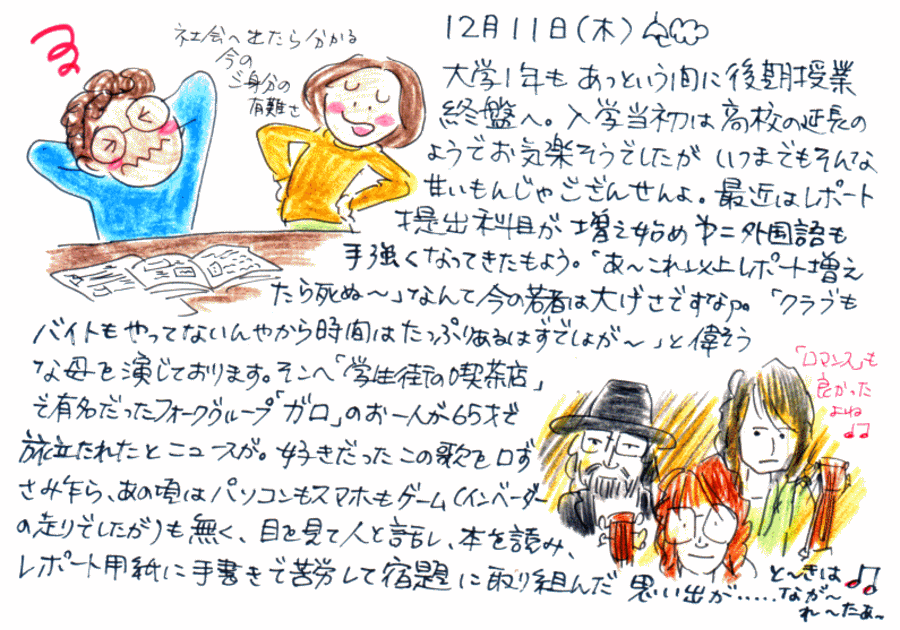 社会へ出たら分かる
今の
ご身分の
有難さ
12月11日(木)
大学1年も あっという間に後期授業
終盤へ。入学当初は高校の延長の
ようでお気楽そうでしたが いつまでもそんな
甘いもんじゃございんせんよ。最近はレポート
提出科目が 増え始め 第二外国語も
手強くなってきたもよう。「あ〜これ以上レポート増え
たら死ぬ〜」なんて今の若者は大げさですなρ。「クラブも
バイトもやってないんやから時間はたっぷりあるはずでしょが〜」と偉そう
な母を演じております。そこへ「学生街の喫茶店」
で有名だったフォークグループ「ガロ」のお一人が65才で
旅立たれたとニュースが。好きだったこの歌を口ず
さみ乍ら、あの頃はパソコンもスマホもゲーム(インベーダー
の走りでしたがり)も無く、目を見て人と話し、本を読み、
レポート用紙に手書きで苦労して宿題に取り組んだ 思い出が.....
「ロマンス」も
良かった
よね
と〜きは
なが〜
れ〜たぁ〜